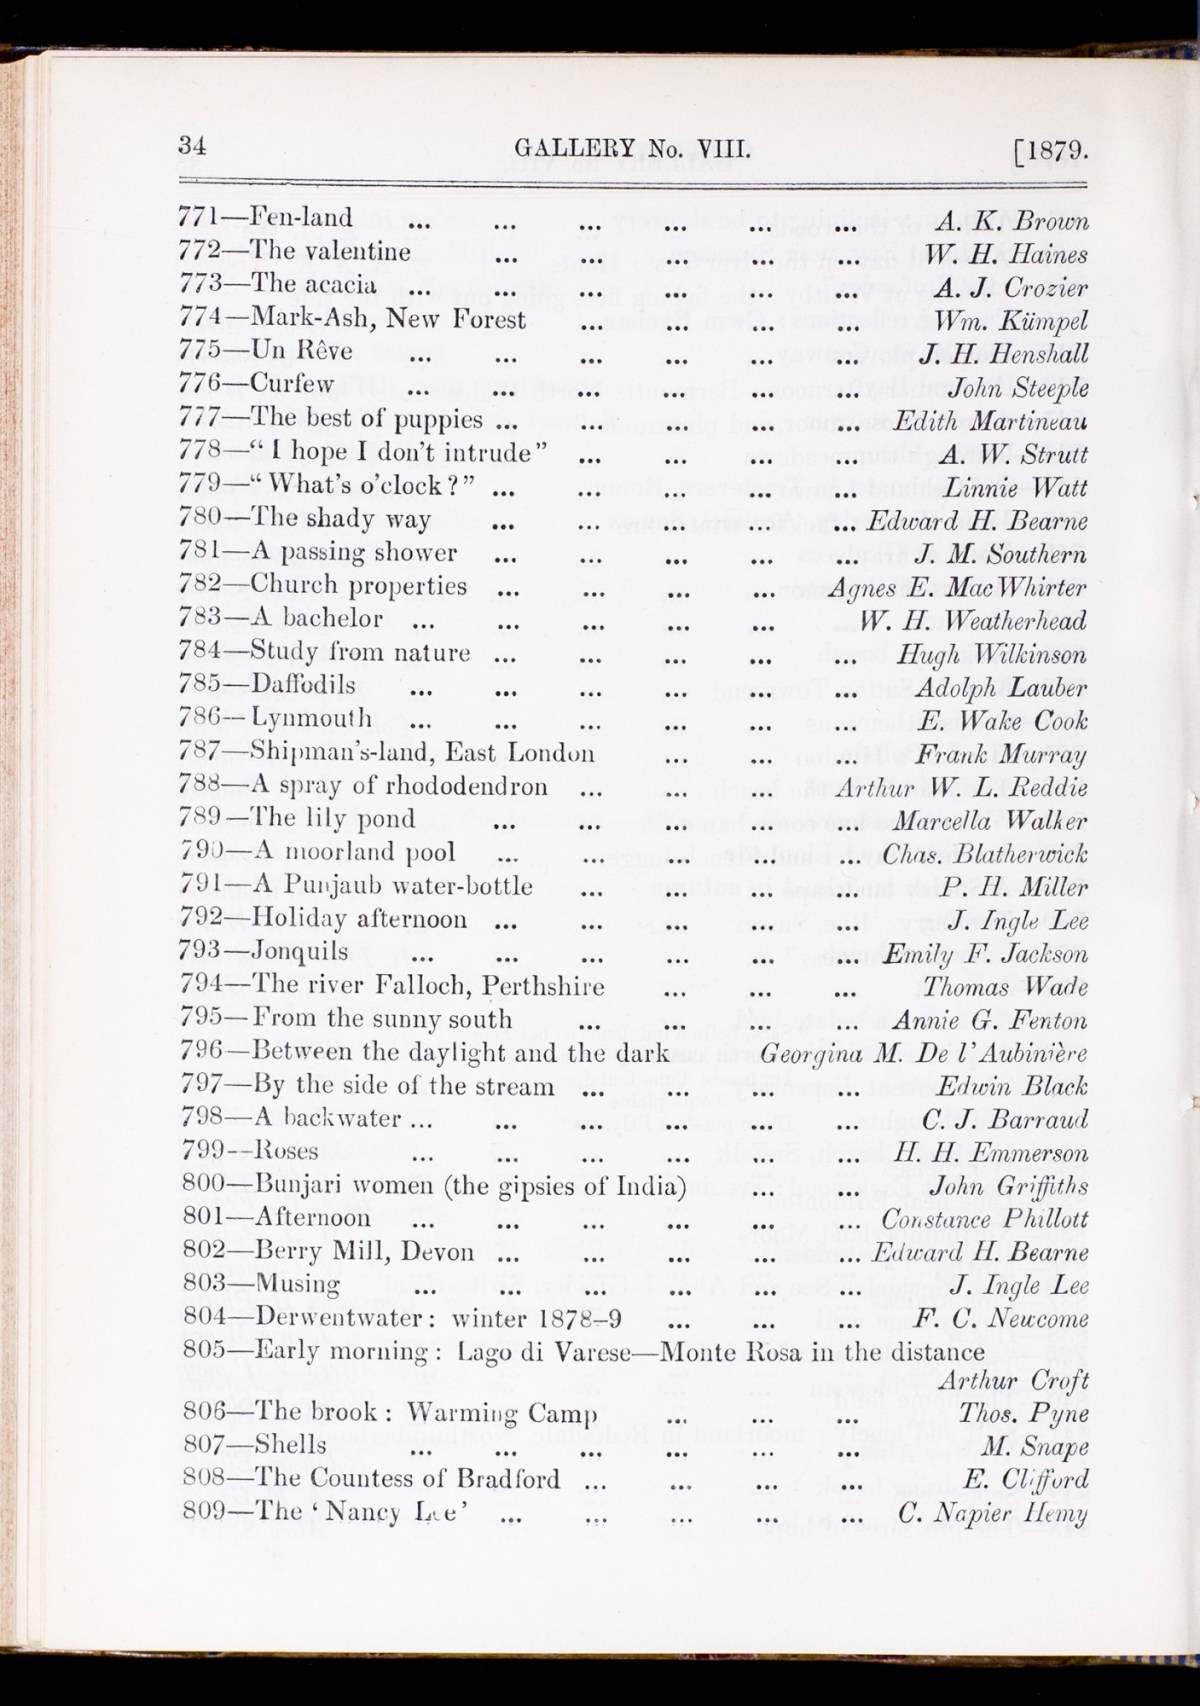 34 GALLERY No. VIII. [1879.
771—Fen-land ... ... ... ... ... ... A. K. Brown
772—The valentine ... ... ... ... ... W. H. Haines
773—The acacia ... ... ... ... ... ... A. J. Crozier
774—Mark-Ash, New Forest ... ... ... ... Wm. Kümpel
775—Un Rêve ... ... ... ... ... ... J. H. Henshall
776—Curfew ... ... ... ... ... ... John Steeple
777—The best of puppies ... ... ... ... ... Edith Martineau
778—“I hope I don't intrude” ... ... ... ... A. W. Strutt
779—“What's o'clock?” ... ... ... ... ... Linnie Watt
780—The shady way ... ... ... ... ... Edward H. Bearne
781—A passing shower ... ... ... ... ... J. M. Southern
782—Church properties ... ... ... ... Agnes E. MacWhirter
783—A bachelor ... ... ... ... ... W. H. Weatherhead
784—Study from nature ... ... ... ... ... Hugh Wilkinson
785—Daffodils ... ... ... ... ... ... Adolph Lauber
786—Lynmouth ... ... ... ... ... ... E. Wake Cook
787—Shipman's-land, East London ... ... ... Frank Murray
788—A spray of rhododendron ... ... ... Arthur W. L. Reddie
789—The lily pond ... ... ... ... ... Marcella Walker
790—A moorland pool ... ... ... ... ... Chas. Blatherwick
791—A Punjaub water-bottle ... ... ... ... P. H. Miller
792—Holiday afternoon ... ... ... ... ... J. Ingle Lee
793—Jonquils ... ... ... ... ... ... Emily F. Jackson
794—The river Falloch, Perthshire ... ... ... Thomas Wade
795—From the sunny south ... ... ... ... Annie G. Fenton
796—Between the daylight and the dark Georgina M. De l'Aubinière
797—By the side of the stream ... ... ... ... Edwin Black
798—A backwater ... ... ... ... ... ... C. J. Barraud
799—Roses ... ... ... ... ... ... H. H. Emmerson
800—Bunjari women (the gipsies of India) ... ... John Griffiths
801—Afternoon ... ... ... ... ... ... Constance Phillott
802—Berry Mill, Devon ... ... ... ... ... Edward H. Bearne
803—Musing ... ... ... ... ... ... J. Ingle Lee
804—Derwentwater: winter 1878–9 ... ... ... F. C. Newcome
805—Early morning: Lago di Varese—Monte Rosa in the distance
Arthur Croft
806—The brook: Warming Camp ... ... ... Thos. Pyne
807—Shells ... ... ... ... ... ... M. Snape
808—The Countess of Bradford ... ... ... ... E. Clifford
809—The ‘Nancy Lee’ ... ... ... ... ... C. Napier Hemy